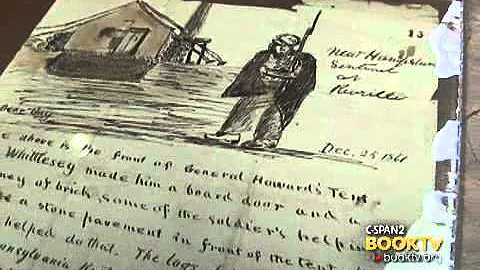 13
New Hampshire
Sentinel
at
Reveille
Dec. 25 1861
Dear Guy
e above is the front of General Howard's Ten
Whittlesey made him a board door and a
ney of brick, some of the soldier's helpin
e a stone pavement in front of the tent
helped do that. The logs
nnsylvania
C-SPAN2
BOOKTV
booktv.org